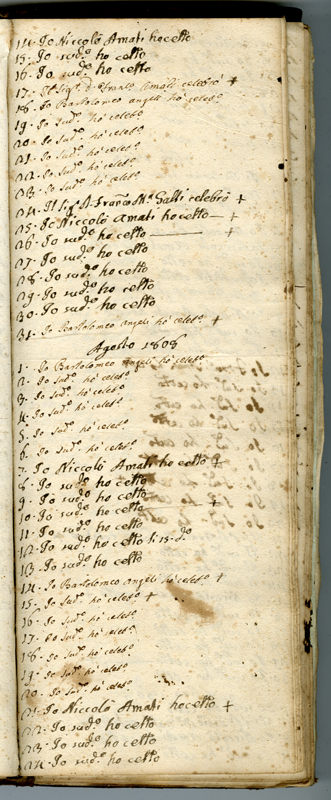 14. Io Niccolò Amati ho cetto
15. Io sud.º ho cetto
16. Io sud.º ho cetto
17. Il Sig.r d. Amati celebrò +
18. Io Bartolomeo angeli hò celeb.º
19. Io sud.º hò celeb.º
20. Io sud.º hò celeb.º
21. Io sud.º hò celeb.º
22. Io sud.º hò celeb.º
23. Io sud.º hò celeb.º
24. Il Sig.r D. Franco M.ª Galli celebrò +
25. Io Niccolò Amati ho cetto — +
26. Io sud.º ho cetto — +
27. Io sud.º ho cetto
28. Io sud.º ho cetto
29. Io sud.º ho cetto
30. Io sud.º ho cetto
31. Io Bartolomeo angeli hò celeb.º +
Agosto 1808
1. Io Bartolomeo angeli hò celeb.º
2. Io sud.º hò celeb.º
3. Io sud.º hò celeb.º
4. Io sud.º hò celeb.º
5. Io sud.º hò celeb.º
6. Io sud.º hò celeb.º
7. Io Niccolò Amati ho cetto +
8. Io sud.º ho cetto
9. Io sud.º ho cetto
10. Io sud.º ho cetto — +
11. Io sud.º ho cetto
12. Io sud.º ho cetto
13. Io sud.º ho cetto
14. Io Bartolomeo angeli hò celeb.º +
15. Io sud.º hò celeb.º +
16. Io sud.º hò celeb.º
17. Io sud.º hò celeb.º
18. Io sud.º hò celeb.º
19. Io sud.º hò celeb.º
20. Io sud.º hò celeb.º
21. Io Niccolò Amati ho cetto +
22. Io sud.º ho cetto
23. Io sud.º ho cetto
24. Io sud.º ho cetto